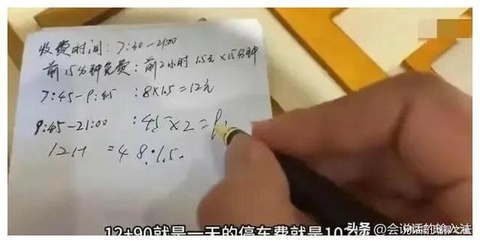 收费时间：7:30-21:00
前15分钟免费：前2小时 1.5元×15分钟
7:45-9:45 ：8×1.5=12元
9:45-21:00 ：45×2=9
12+1 =48:1.5.
12+90就是一天的停车费就是102
头条@会说话的输入法